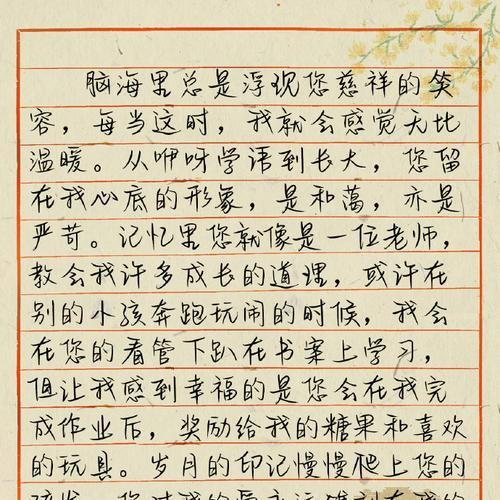 脑海里总是浮现您慈祥的笑
容，每当这时，我就会感觉无比
温暖。从咿呀学语到长大，您留
在我心底的形象，是和蔼，亦是
严苛。记忆里您就像是一位老师，
教会我许多成长的道理，或许在
别的小孩奔跑玩闹的时候，我会
在您的看管下趴在书案上学习，
但让我感到幸福的是您会在我完
成作业后，奖励给我的糖果和喜欢
的玩具。岁月的印记慢慢爬上您的